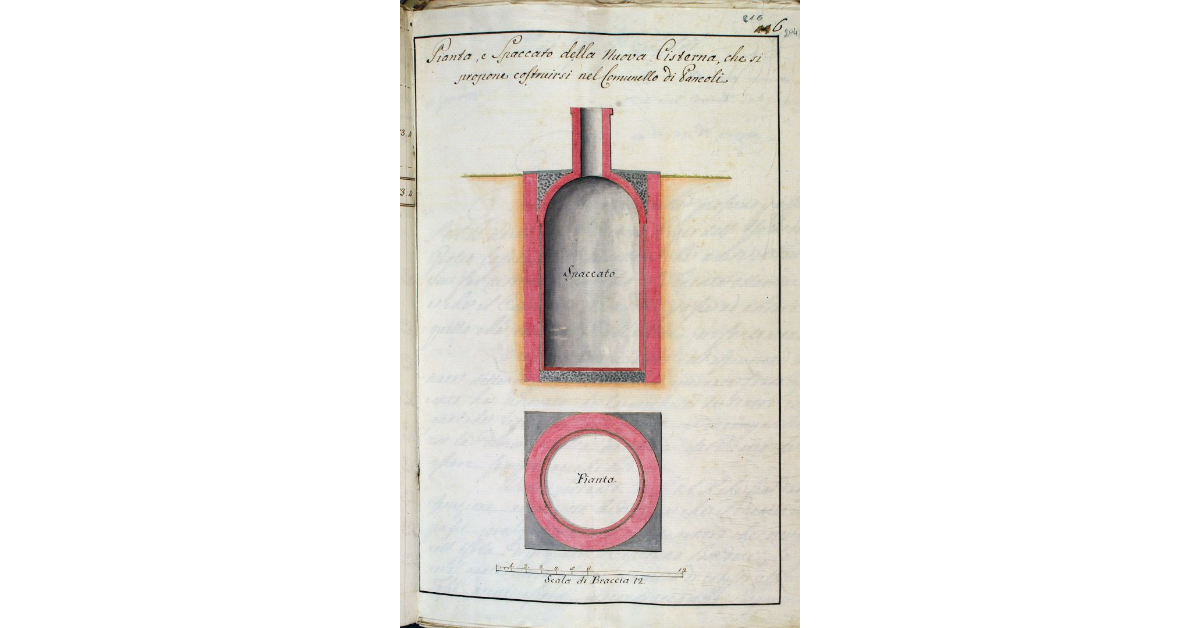 216
6
214
Pianta, e Spaccato della Nuova Cisterna, che si
propone costruirsi nel Comunello di Pancoli
3.4
3.4
Spaccato
Pianta
12
Scala di Braccia 12